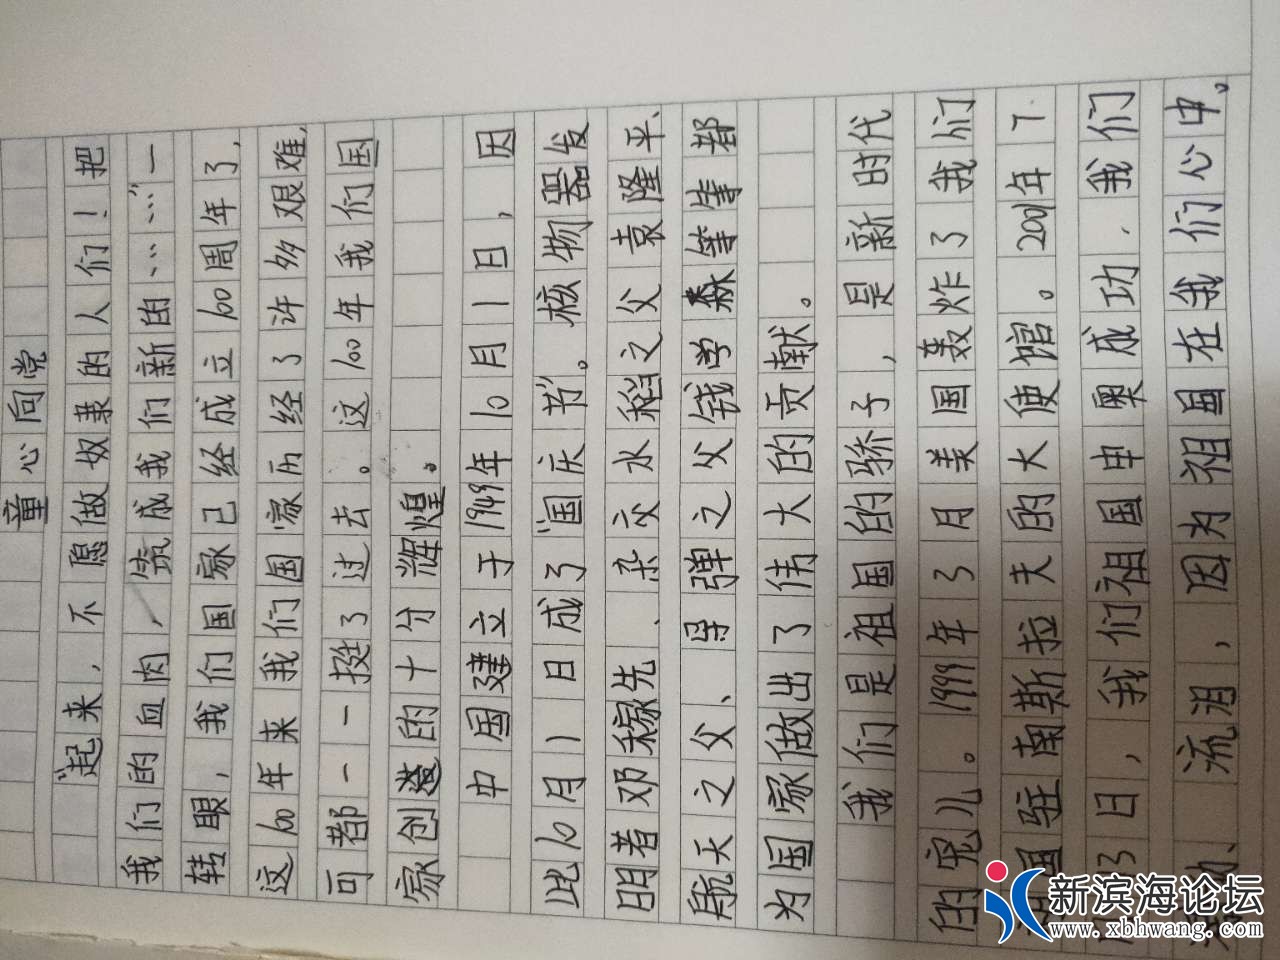 童心向党
“起来，不愿做奴隶的人们！把
我们的血肉，筑成我们新的……”一
转眼，我们国家已经成立100周年了，
这100年来我们国家历经了许多艰难，
可都一一挺了过去。这100年我们国
家创造的十分辉煌。
中国建立于1949年10月1日，因
此10月1日成了“国庆节”。核物器发
明者邓稼先、杂交水稻之父袁隆平、
航天之父、导弹之父钱学森等等都
为国家做出了伟大的贡献。
我们是祖国的骄子，是新时代
的宠儿。1999年3月美国轰炸了我们
国驻南斯拉夫的大使馆。2001年7
月13日，我们祖国申奥成功，我们
流泪，因为祖国在我们心中。
新滨海论坛
www.xbhwang.com